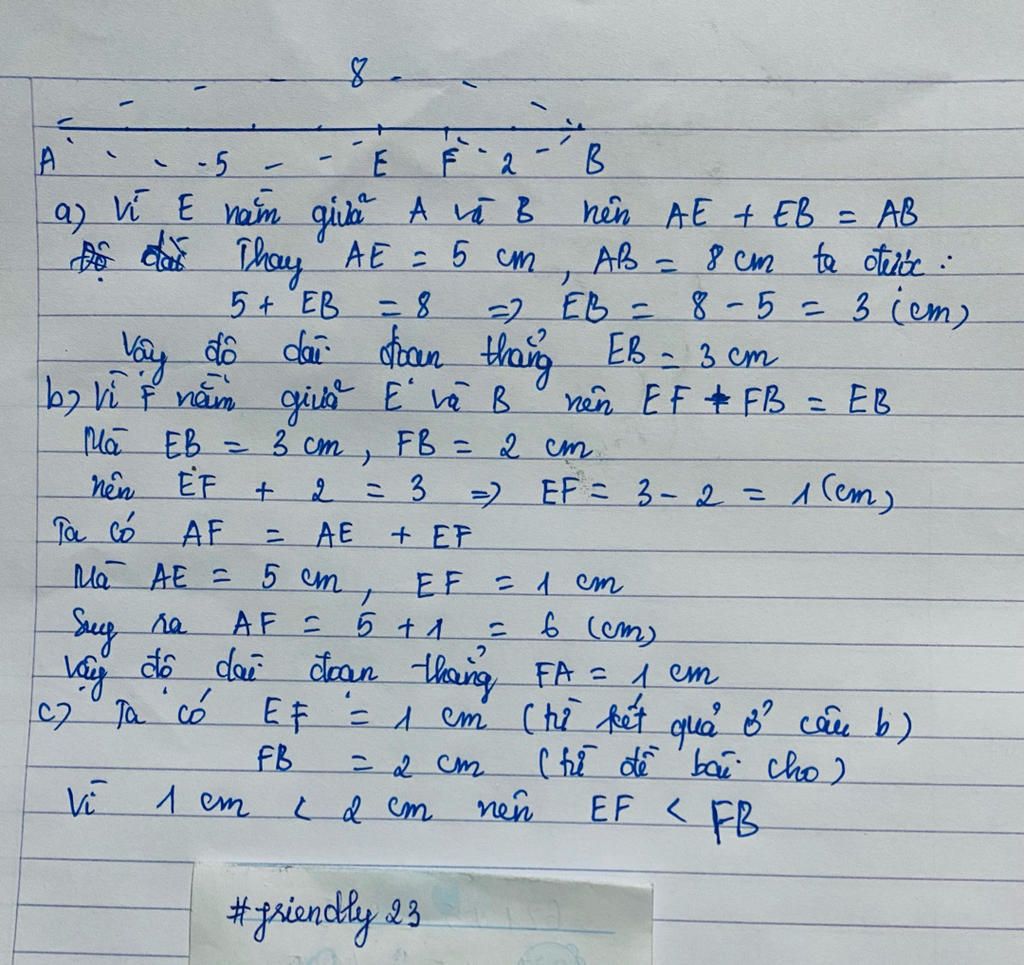 8
A 5 E F 2 B
a) Vì E nằm giữa A và B nên AE + EB = AB
Độ dài Thay AE = 5 cm, AB = 8 cm ta được :
5 + EB = 8 => EB = 8 - 5 = 3 (cm)
Vậy độ dài đoạn thẳng EB = 3 cm
b) Vì F nằm giữa E và B nên EF + FB = EB
Mà EB = 3 cm, FB = 2 cm
nên EF + 2 = 3 => EF = 3 - 2 = 1 (cm)
Ta có AF = AE + EF
Mà AE = 5 cm, EF = 1 cm
Suy ra AF = 5 + 1 = 6 (cm)
Vậy độ dài đoạn thẳng FA = 1 cm
c) Ta có EF = 1 cm (từ kết quả ở câu b)
FB = 2 cm (từ đề bài cho)
Vì 1 cm < 2 cm nên EF < FB
#friendly 23